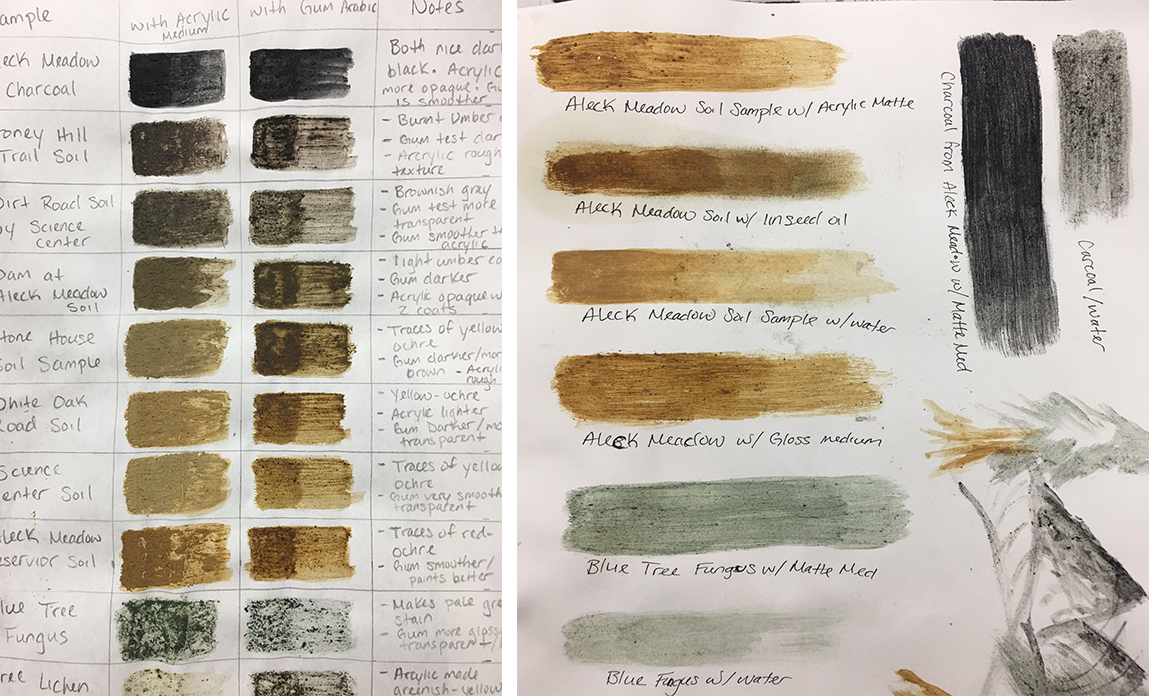 with Acrylic Medium
with Gum Arabic
Notes
Meadow
Charcoal
Both nice
black. Acrylic
more opaque.
is smoother
Hill
Trail Soil
- Burnt Umber
- Gum test
- Arcrylic rough
texture
Dirt Road Soil
by Science
center
- Brownish gray
- Gum test more
transparent
- Gum smoother
acrylic
Dam at
Aleck Meadow
Soil
- light umber
- Gum darker
- Acrylic opaque
2 coats
House
Soil Sample
- Traces of yellow
ochre
- Gum darker/
brown - Acrylic
rough
White Oak
Road Soil
- Yellow-ochre
- Acrylic lighter
- Gum Darther/
transparent
Science
Center Soil
- Traces of yellow
ochre
- Gum very smooth
transparent
Aleck Meadow
Reservior Soil
- Traces of red-
ochre
- Gum smoother/
paints better
Blue Tree
Fungus
- Makes pale
stain
- Gum more
transparent/
Lichen
- Acrylic made
greenish-yellow
Aleck Meadow Soil Sample w/ Acrylic Matte
Aleck Meadow Soil w/ linseed oil
Aleck Meadow Soil Sample w/water
Aleck Meadow w/ Gloss medium
Blue Tree Fungus w/ Matte Med
Blue Fungus w/ water
Charcoal from Aleck Meadow w/ Matte Med
Carcoal/water